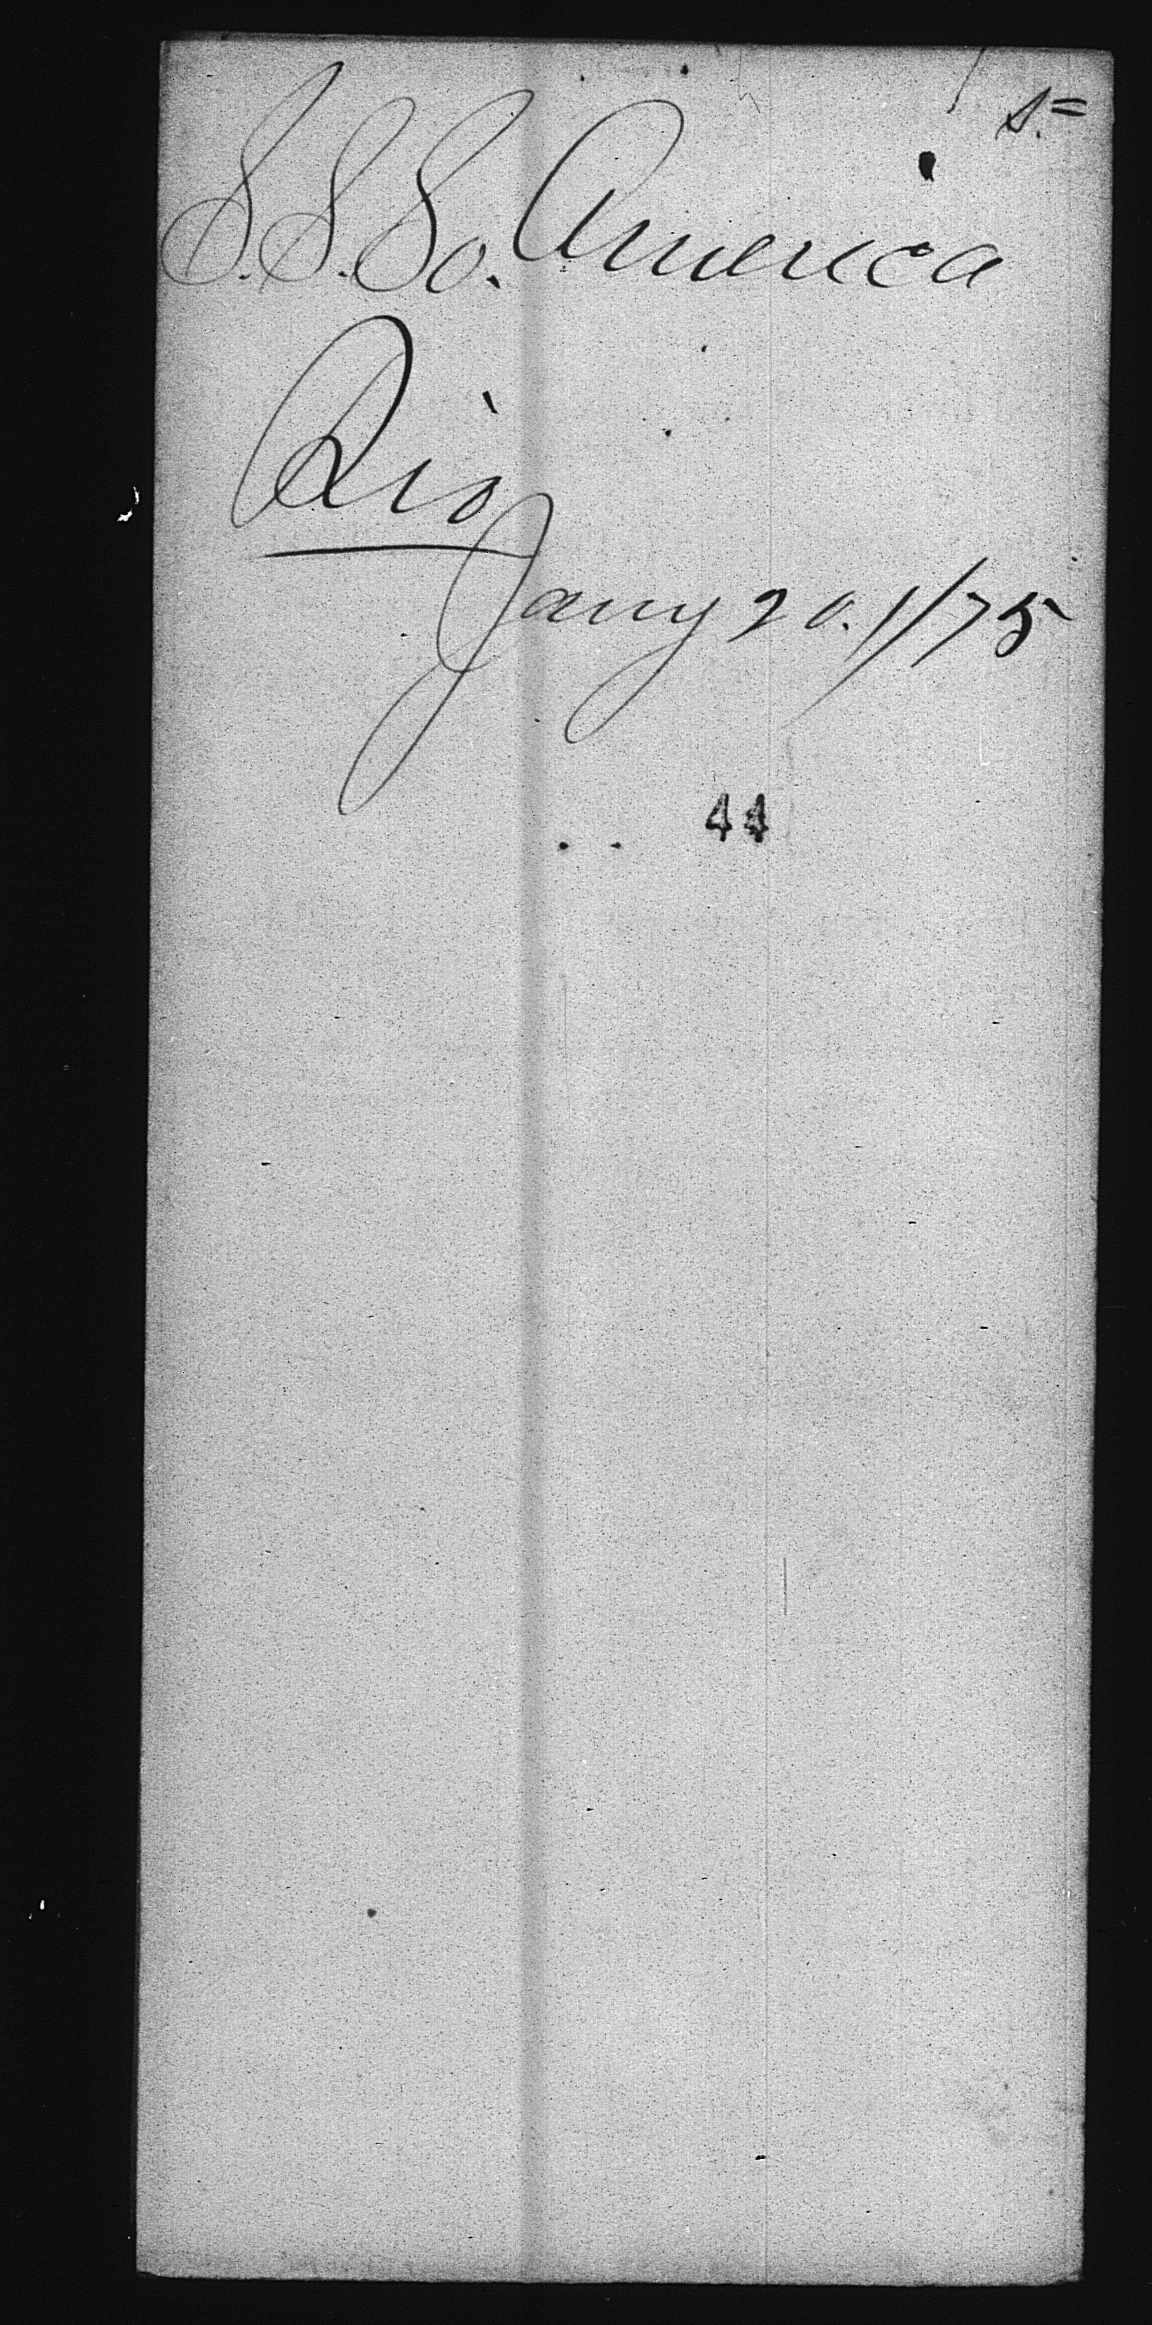 S.=
S.S. So. America
Rio
Jany 20. 1/75
44